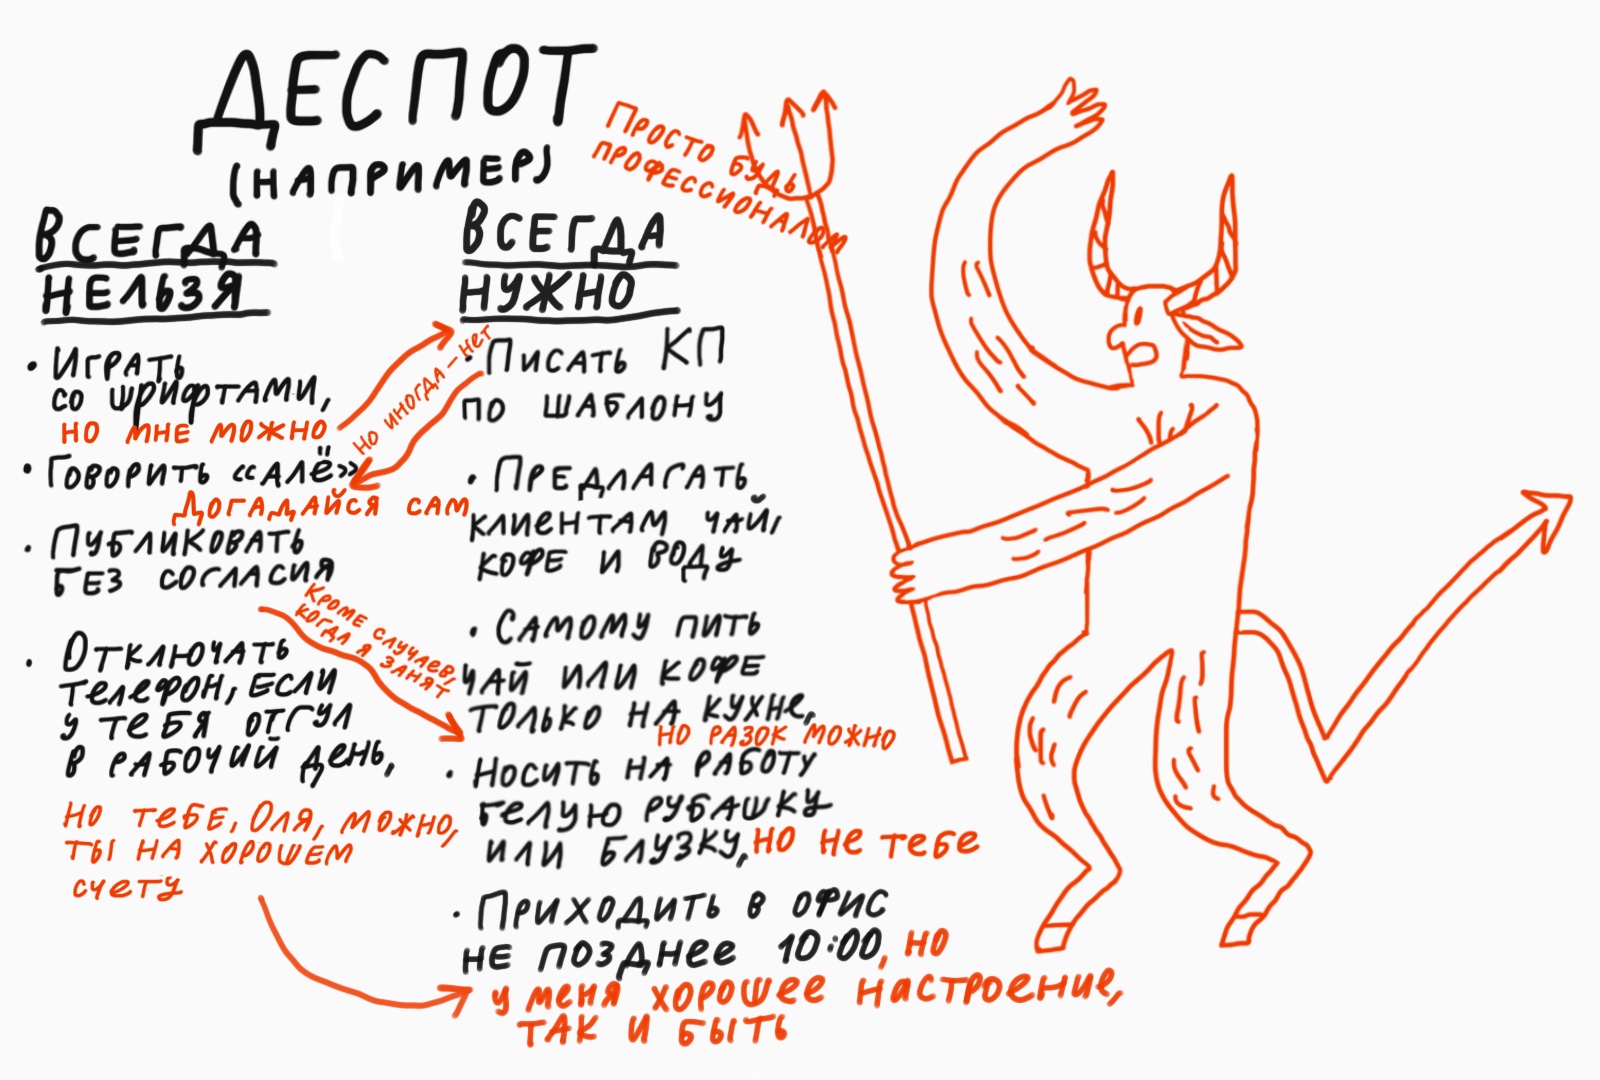 ДЕСПОТ
(НАПРИМЕР)
Просто будь
профессионалом
ВСЕГДА
НЕЛЬЗЯ
• Играть
со шрифтами,
но мне можно
• Говорить «алё»
Догадайся сам
• Публиковать
без согласия
• Отключать
телефон, если
у тебя отгул
в рабочий день,
Но тебе, Оля, можно,
ты на хорошем
счету
Но иногда – нет
Кроме случаев,
когда я занят
ВСЕГДА
НУЖНО
• Писать КП
по шаблону
• Предлагать
клиентам чай,
кофе и воду
• Самому пить
чай или кофе
только на кухне,
но разок можно
• Носить на работу
белую рубашку
или блузку, но не тебе
• Приходить в офис
не позднее 10:00, но
у меня хорошее настроение,
так и быть